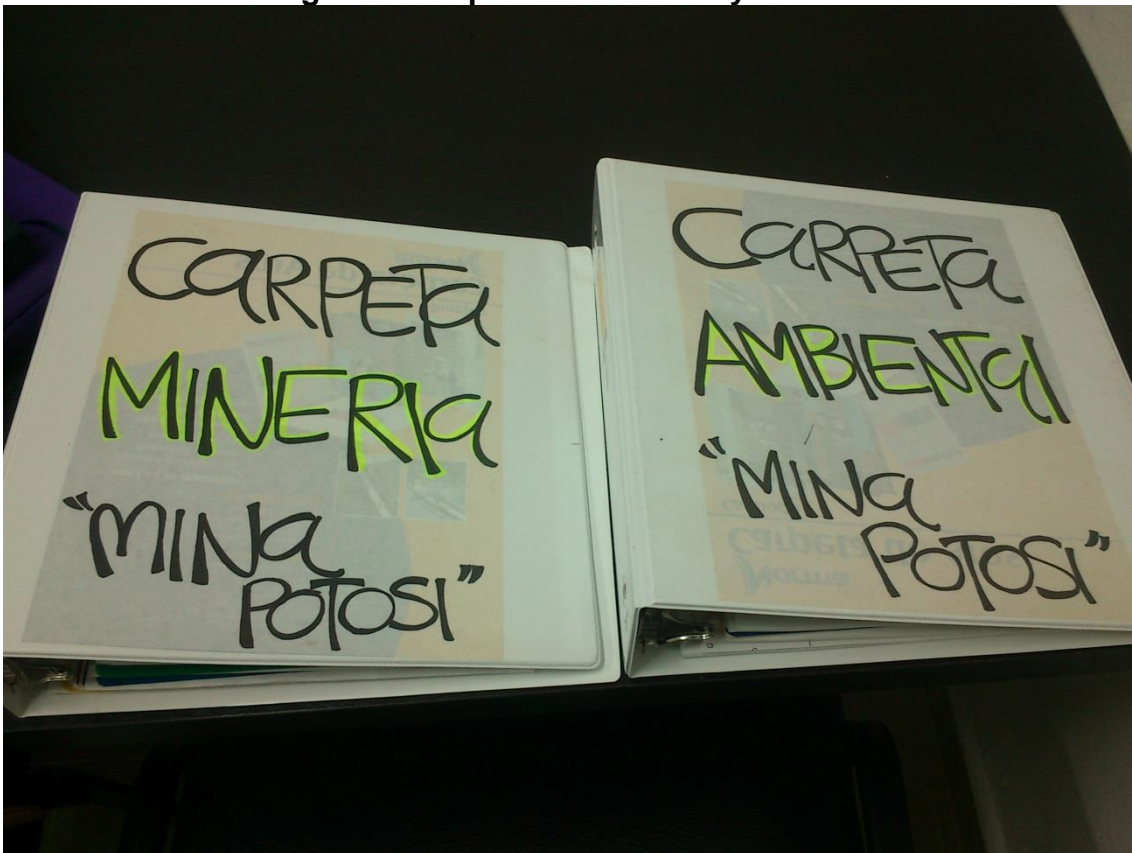 CARPETA
MINERIA
"MINA
POTOSI"
CARPETA
AMBIENTAl
"MINA
POTOSI"
Carpeta
Norma